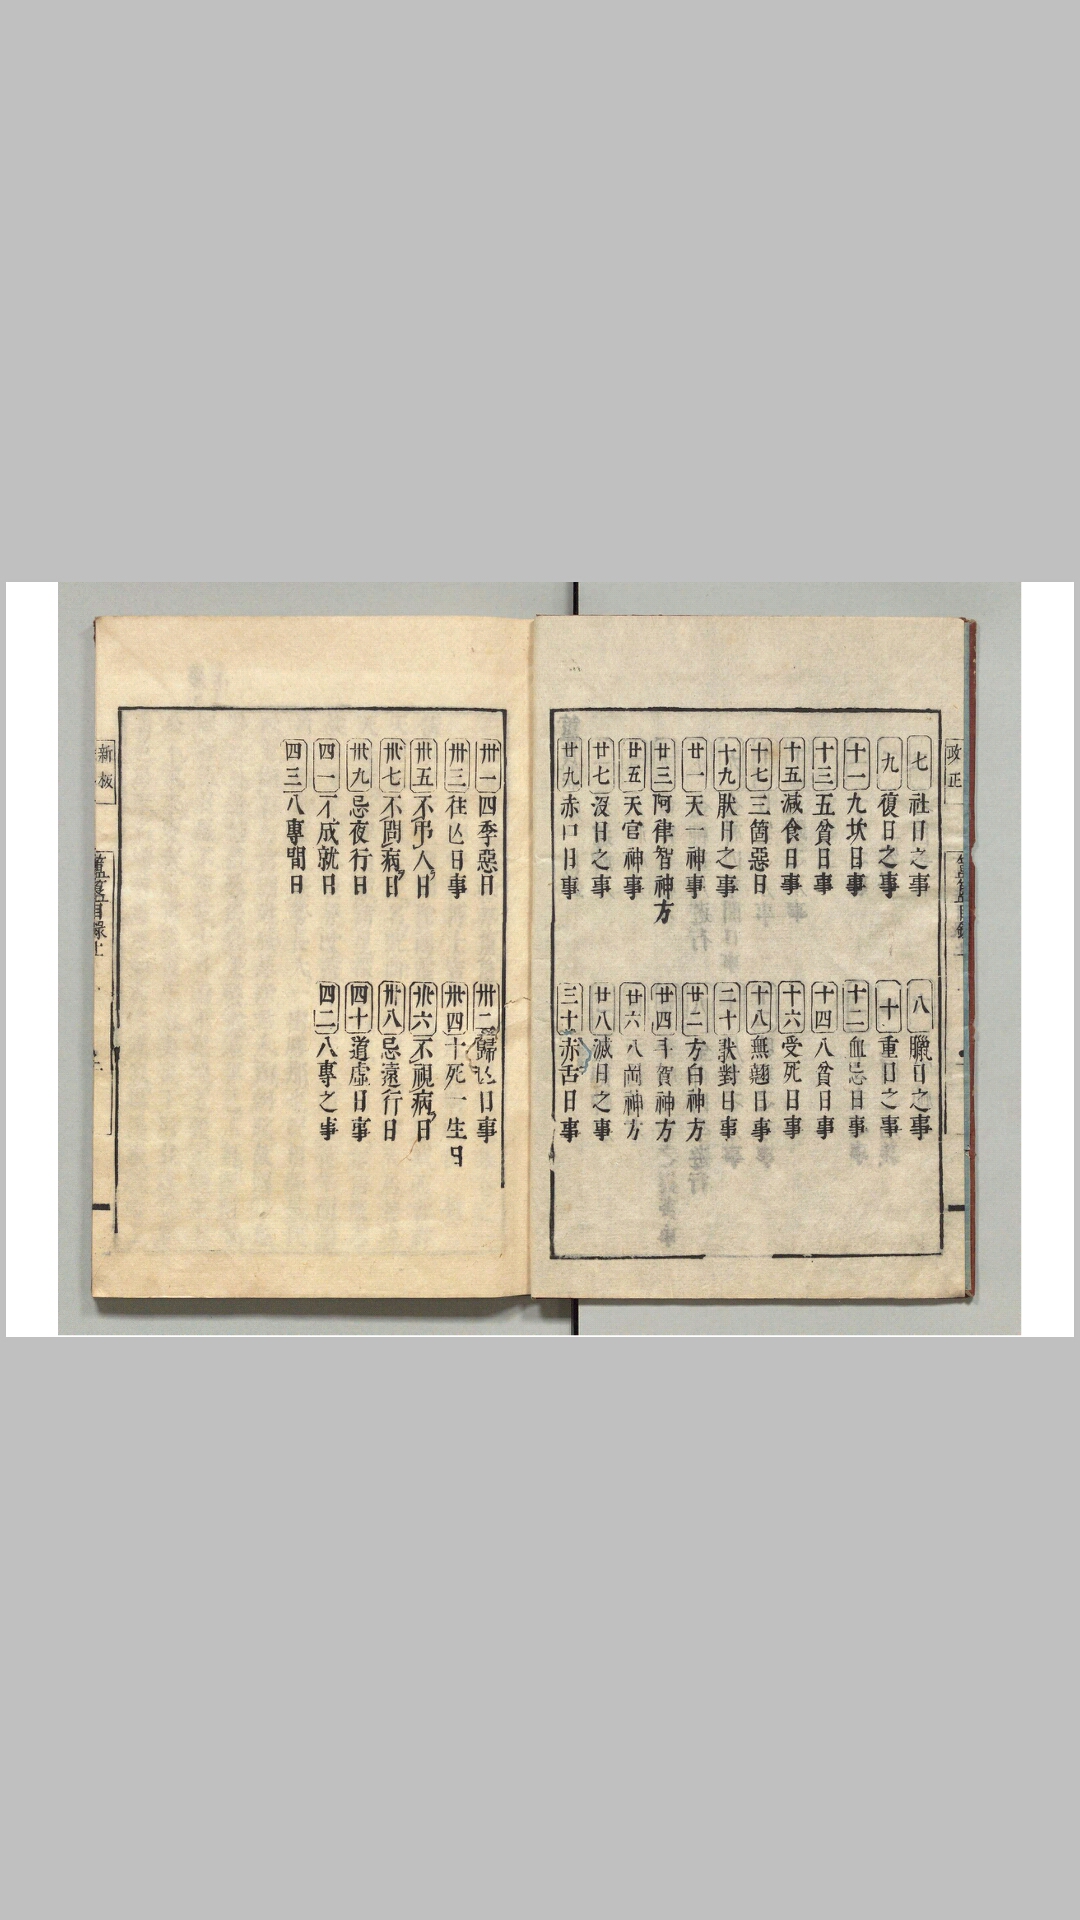 改正
七 社日之事
八 臘日之事
九 復日之事
十 重日之事
十一 九坎日事
十二 血忌日事
十三 五貧日事
十四 八貧日事
十五 减食日事
十六 受死日事
十七 三箇惡日
十八 無翹日事
十九 歃日之事
二十 歃對日事
廿一 天一神事
廿二 方白神方
廿三 阿律智神方
廿四 斗賀神方
廿五 天官神事
廿六 八崗神方
廿七 沒日之事
廿八 滅日之事
廿九 赤口日事
三十 赤舌日事
卅一 四季惡日
卅二 歸亡日事
卅三 往亡日事
卅四 十死一生日
卅五 不弔人日
卅六 不視病日
卅七 不問病日
卅八 忌遠行日
卅九 忌夜行日
四十 道虛日事
四一 不成就日
四二 八專之事
四三 八專間日
新板
簠簋目錄上